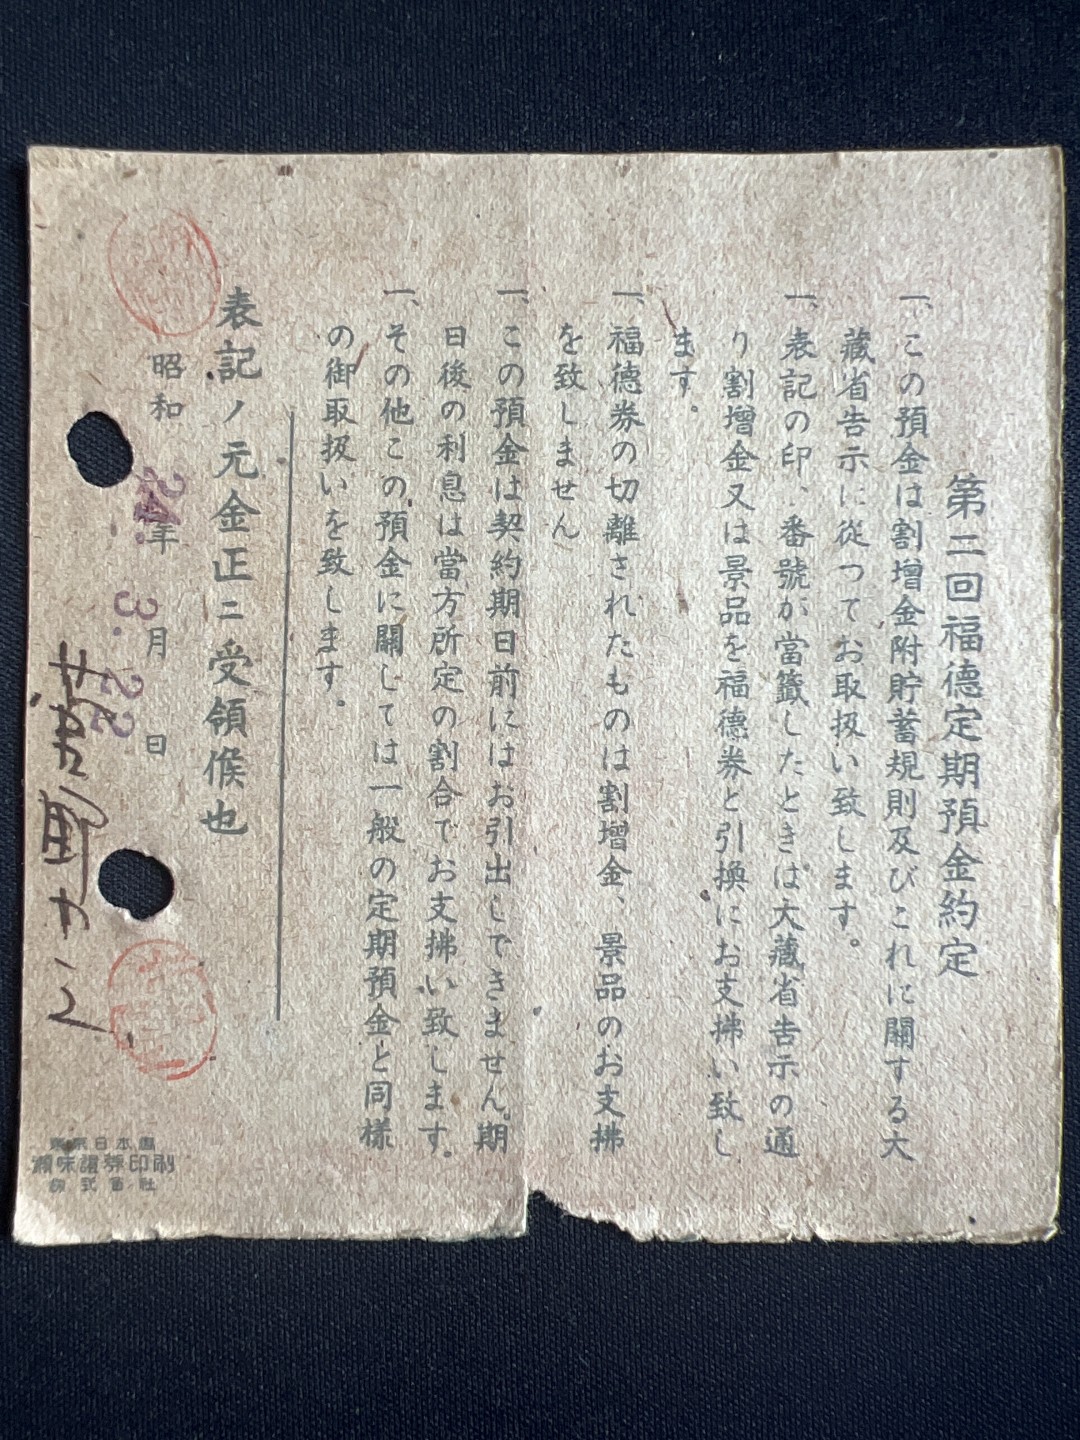 第二回福德定期預金約定
一、この預金は割增金附貯蓄規則及びこれに關する大
藏省告示に従つてお取扱い致します。
一、表記の印、番號が當籤したときは大藏省告示の通
り割增金又は景品を福德券と引換にお支拂い致し
ます。
一、福德券の切離されたものは割增金、景品のお支拂
を致しません
一、この預金は契約期日前にはお引出しできません。期
日後の利息は當方所定の割合でお支拂い致します。
一、その他この預金に關しては一般の定期預金と同樣
の御取扱いを致します。
表記ノ元金正ニ受領候也
昭和24年3月22日
東京日本橋
證券印刷
株式會社